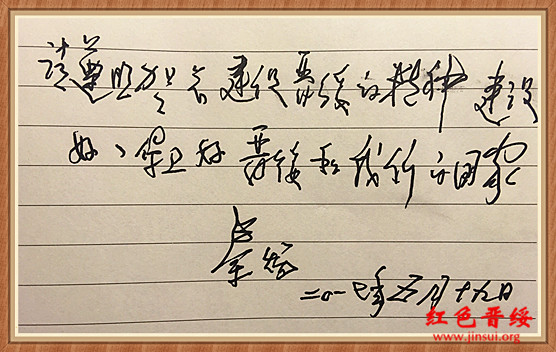 请遵照贺老建设晋绥的精神 建设
好、保卫好晋绥和我们的国家
二〇一七年五月十九日
红色晋绥
www.jinsui.org